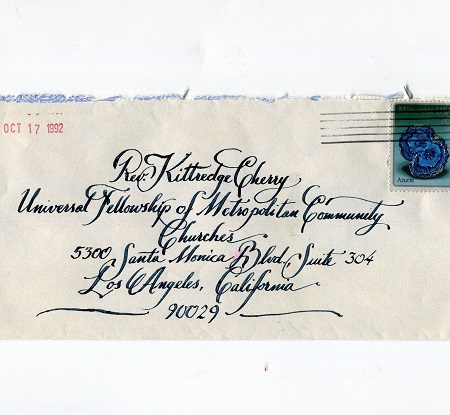 OCT 17 1992
Azurite
Rev. Kittredge Cherry
Universal Fellowship of Metropolitan Community
Churches
5300 Santa Monica Blvd., Suite 304
Los Angeles, California
90029